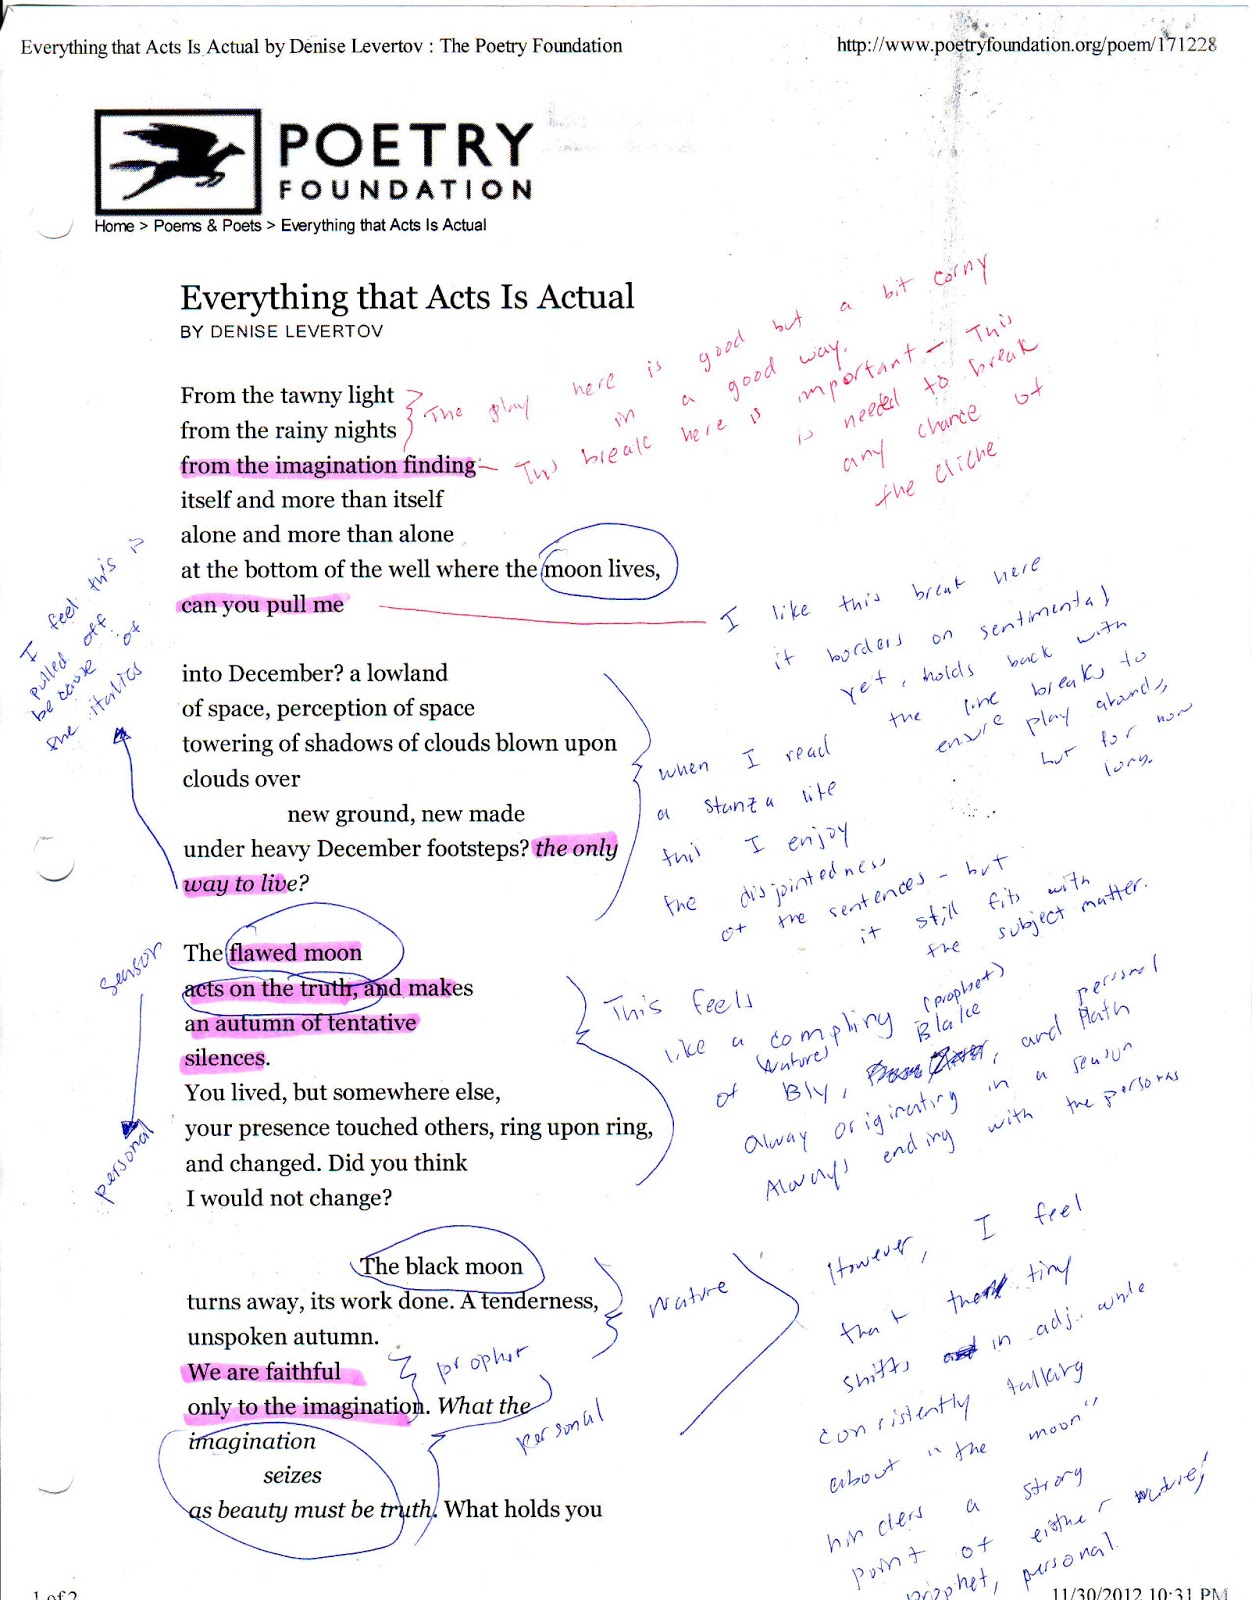 Everything that Acts Is Actual by Denise Levertov : The Poetry Foundation
http://www.poetryfoundation.org/poem/171228
POETRY
FOUNDATION
Home > Poems & Poets > Everything that Acts Is Actual
Everything that Acts Is Actual
BY DENISE LEVERTOV
From the tawny light
from the rainy nights
from the imagination finding
itself and more than itself
alone and more than alone
at the bottom of the well where the moon lives,
can you pull me
into December? a lowland
of space, perception of space
towering of shadows of clouds blown upon
clouds over
new ground, new made
under heavy December footsteps? the only
way to live?
The flawed moon
acts on the truth, and makes
an autumn of tentative
silences.
You lived, but somewhere else,
your presence touched others, ring upon ring,
and changed. Did you think
I would not change?
The black moon
turns away, its work done. A tenderness,
unspoken autumn.
We are faithful
only to the imagination. What the
imagination
seizes
as beauty must be truth. What holds you
The play here is good but a bit corny
in a good way.
This break here is important - This
is needed to break
any chance of
the cliche
I like this break here
it borders on sentimental
yet, holds back with
the line breaks to
ensure play abounds,
but for now
long.
I feel this is
pulled off
because of
the italics
when I read
a stanza like
this I enjoy
the disjointedness
of the sentences - but
it still fits with
the subject matter.
sensor
personal
This feels
like a compling
(nature) (prophet) personal
of Bly, Blake, and Plath
Alway originating in a season
Always ending with the persons
nature
prophet
personal
However, I feel
that the tiny
shifts in adj. while
consistently talking
about "the moon"
hinders a strong
point of either nature,
prophet, personal.
1 of 2
11/30/2012 10:31 PM